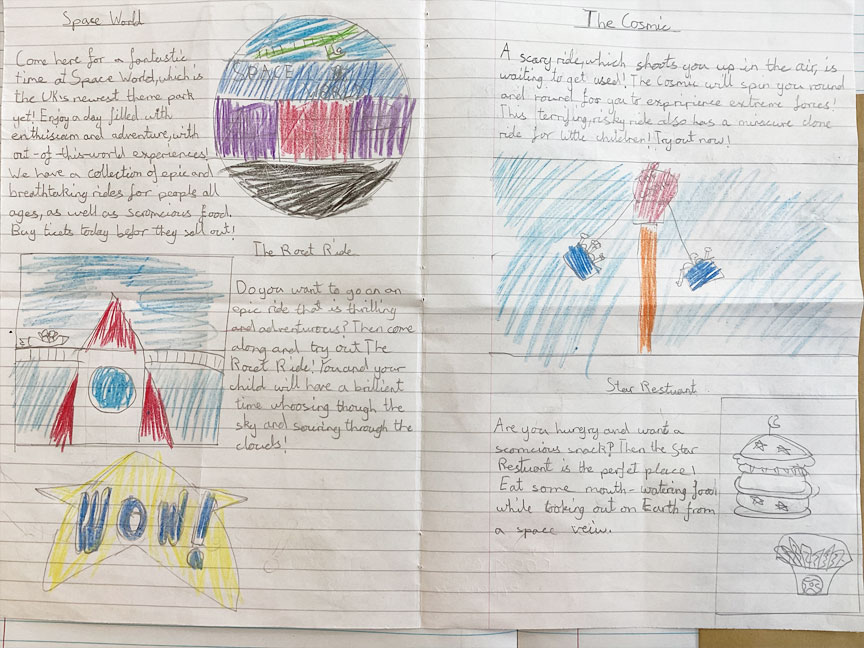 Space World
Come here for a fantastic
time at Space World, which is
the UK's newest theme park
yet! Enjoy a day filled with
enthisiasm and adventure, with
out-of-this-world experiences!
We have a collection of epic and
breathtaking rides for people all
ages, as well as scromcious food.
Buy ticets today befor they sell out!
SPACE
The Rocet Ride
Do you want to go on an
epic ride that is thrilling
and adventurous? Then come
along and try out The
Rocet Ride! You and your
child will have a brillient
time whoosing though the
sky and souring through the
clouds!
WOW!
The Cosmic
A scary ride, which shoots you up in the air, is
waiting to get used! The Cosmic will spin you round
and round for you to exprprience extreme forces!
This terrifying, risky ride also has a minscure clone
ride for little children! Try out now!
Star Restuant
Are you hungry and want a
scomcious snack? Then the Star
Restuant is the perfet place!
Eat some mouth-watering food
while looking out on Earth from
a space veiw.